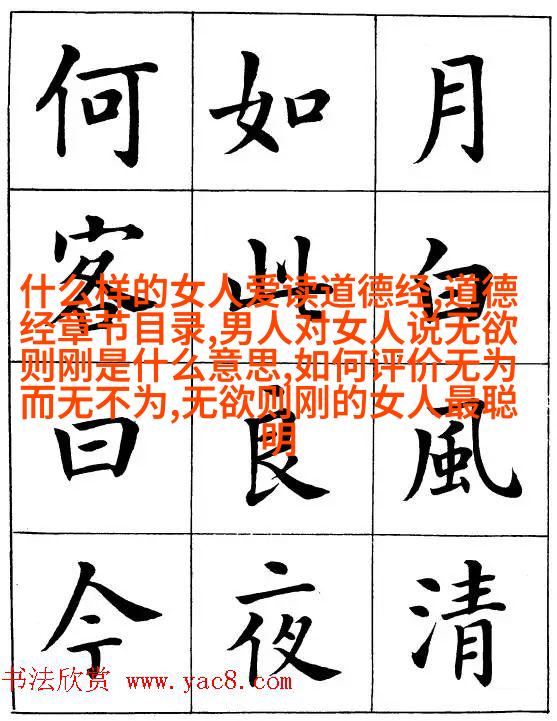 月白風清
如此良夜
何客曰今
什么样的女人爱读道德经,道德
经章节目录,男人对女人说无欲
则刚是什么意思,如何评价无为
而无不为,无欲则刚的女人最聪
明
书法欣赏 www.yac8.com